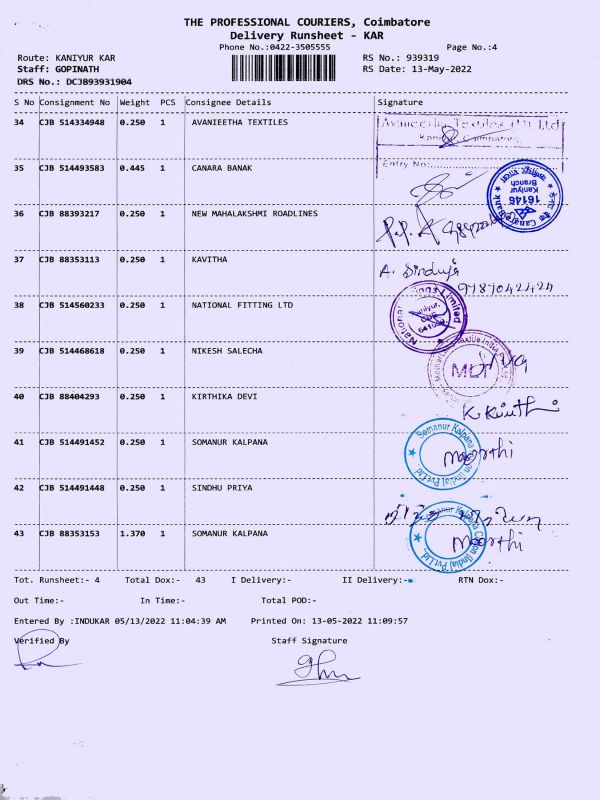 THE PROFESSIONAL COURIERS, Coimbatore
Delivery Runsheet - KAR
Phone No.:0422-3505555
Page No.:4
Route: KANIYUR KAR
RS No.: 939319
Staff: GOPINATH
RS Date: 13-May-2022
DRS No.: DCJB93931904
S No Consignment No Weight PCS Consignee Details Signature
34 CJB 514334948 0.250 1 AVANIEETHA TEXTILES
Avaneetha Textiles (P) Ltd
Coimbatore
Entry No:
35 CJB 514493583 0.445 1 CANARA BANAK
Canara Bank
16146
Kaniyur
Branch
36 CJB 88393217 0.250 1 NEW MAHALAKSHMI ROADLINES
37 CJB 88353113 0.250 1 KAVITHA
A. Sinduja
9787042424
38 CJB 514560233 0.250 1 NATIONAL FITTING LTD
National Limited
Kaniyur,
39 CJB 514468618 0.250 1 NIKESH SALECHA
40 CJB 88404293 0.250 1 KIRTHIKA DEVI
41 CJB 514491452 0.250 1 SOMANUR KALPANA
Somanur Kalpana Cotton (India) Pvt.Ltd.
Moorthi
42 CJB 514491448 0.250 1 SINDHU PRIYA
43 CJB 88353153 1.370 1 SOMANUR KALPANA
Somanur Kalpana Cotton (India) Pvt.Ltd.
Moorthi
Tot. Runsheet:- 4 Total Dox:- 43 I Delivery:- II Delivery:- RTN Dox:-
Out Time:- In Time:- Total POD:-
Entered By :INDUKAR 05/13/2022 11:04:39 AM Printed On: 13-05-2022 11:09:57
Verified By Staff Signature